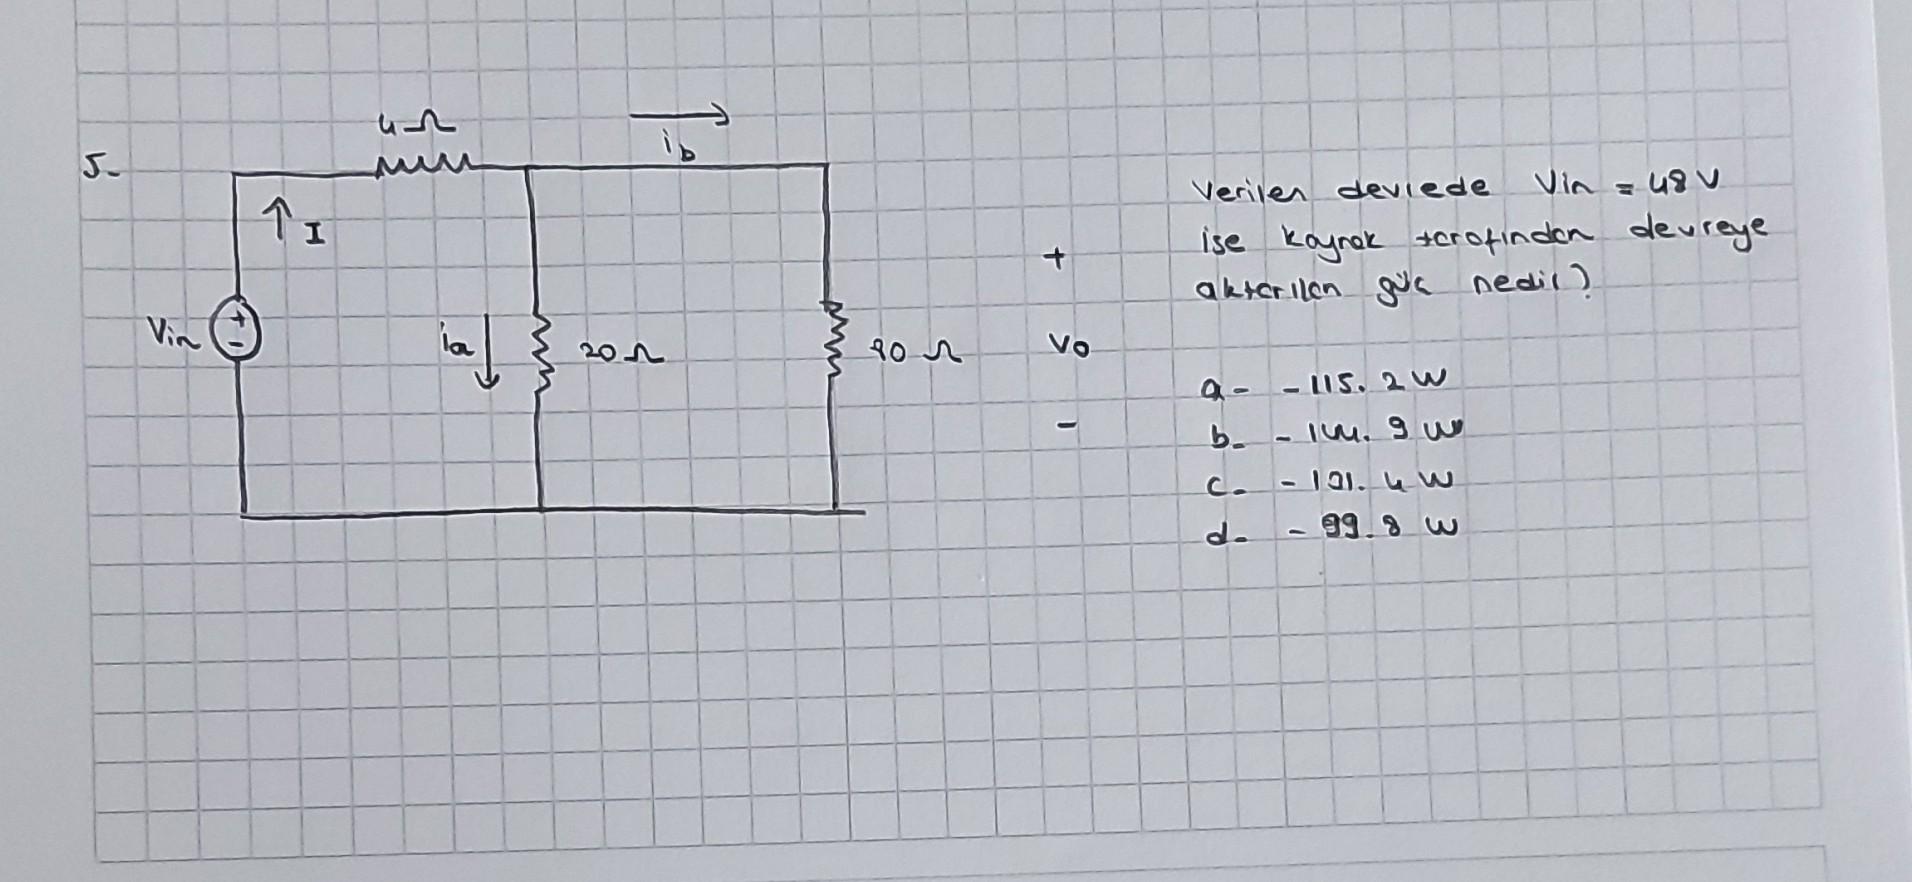 5-
4Ω
ib
I
Vin
+
-
ia
20Ω
Ω
+
Vo
-
Verilen devrede Vin = 48V
ise kaynak tarafından devreye
aktarılan güç nedir?
a- -115.2 W
b- -144. 9 W
c- -101. 4 W
d- -99.8 W